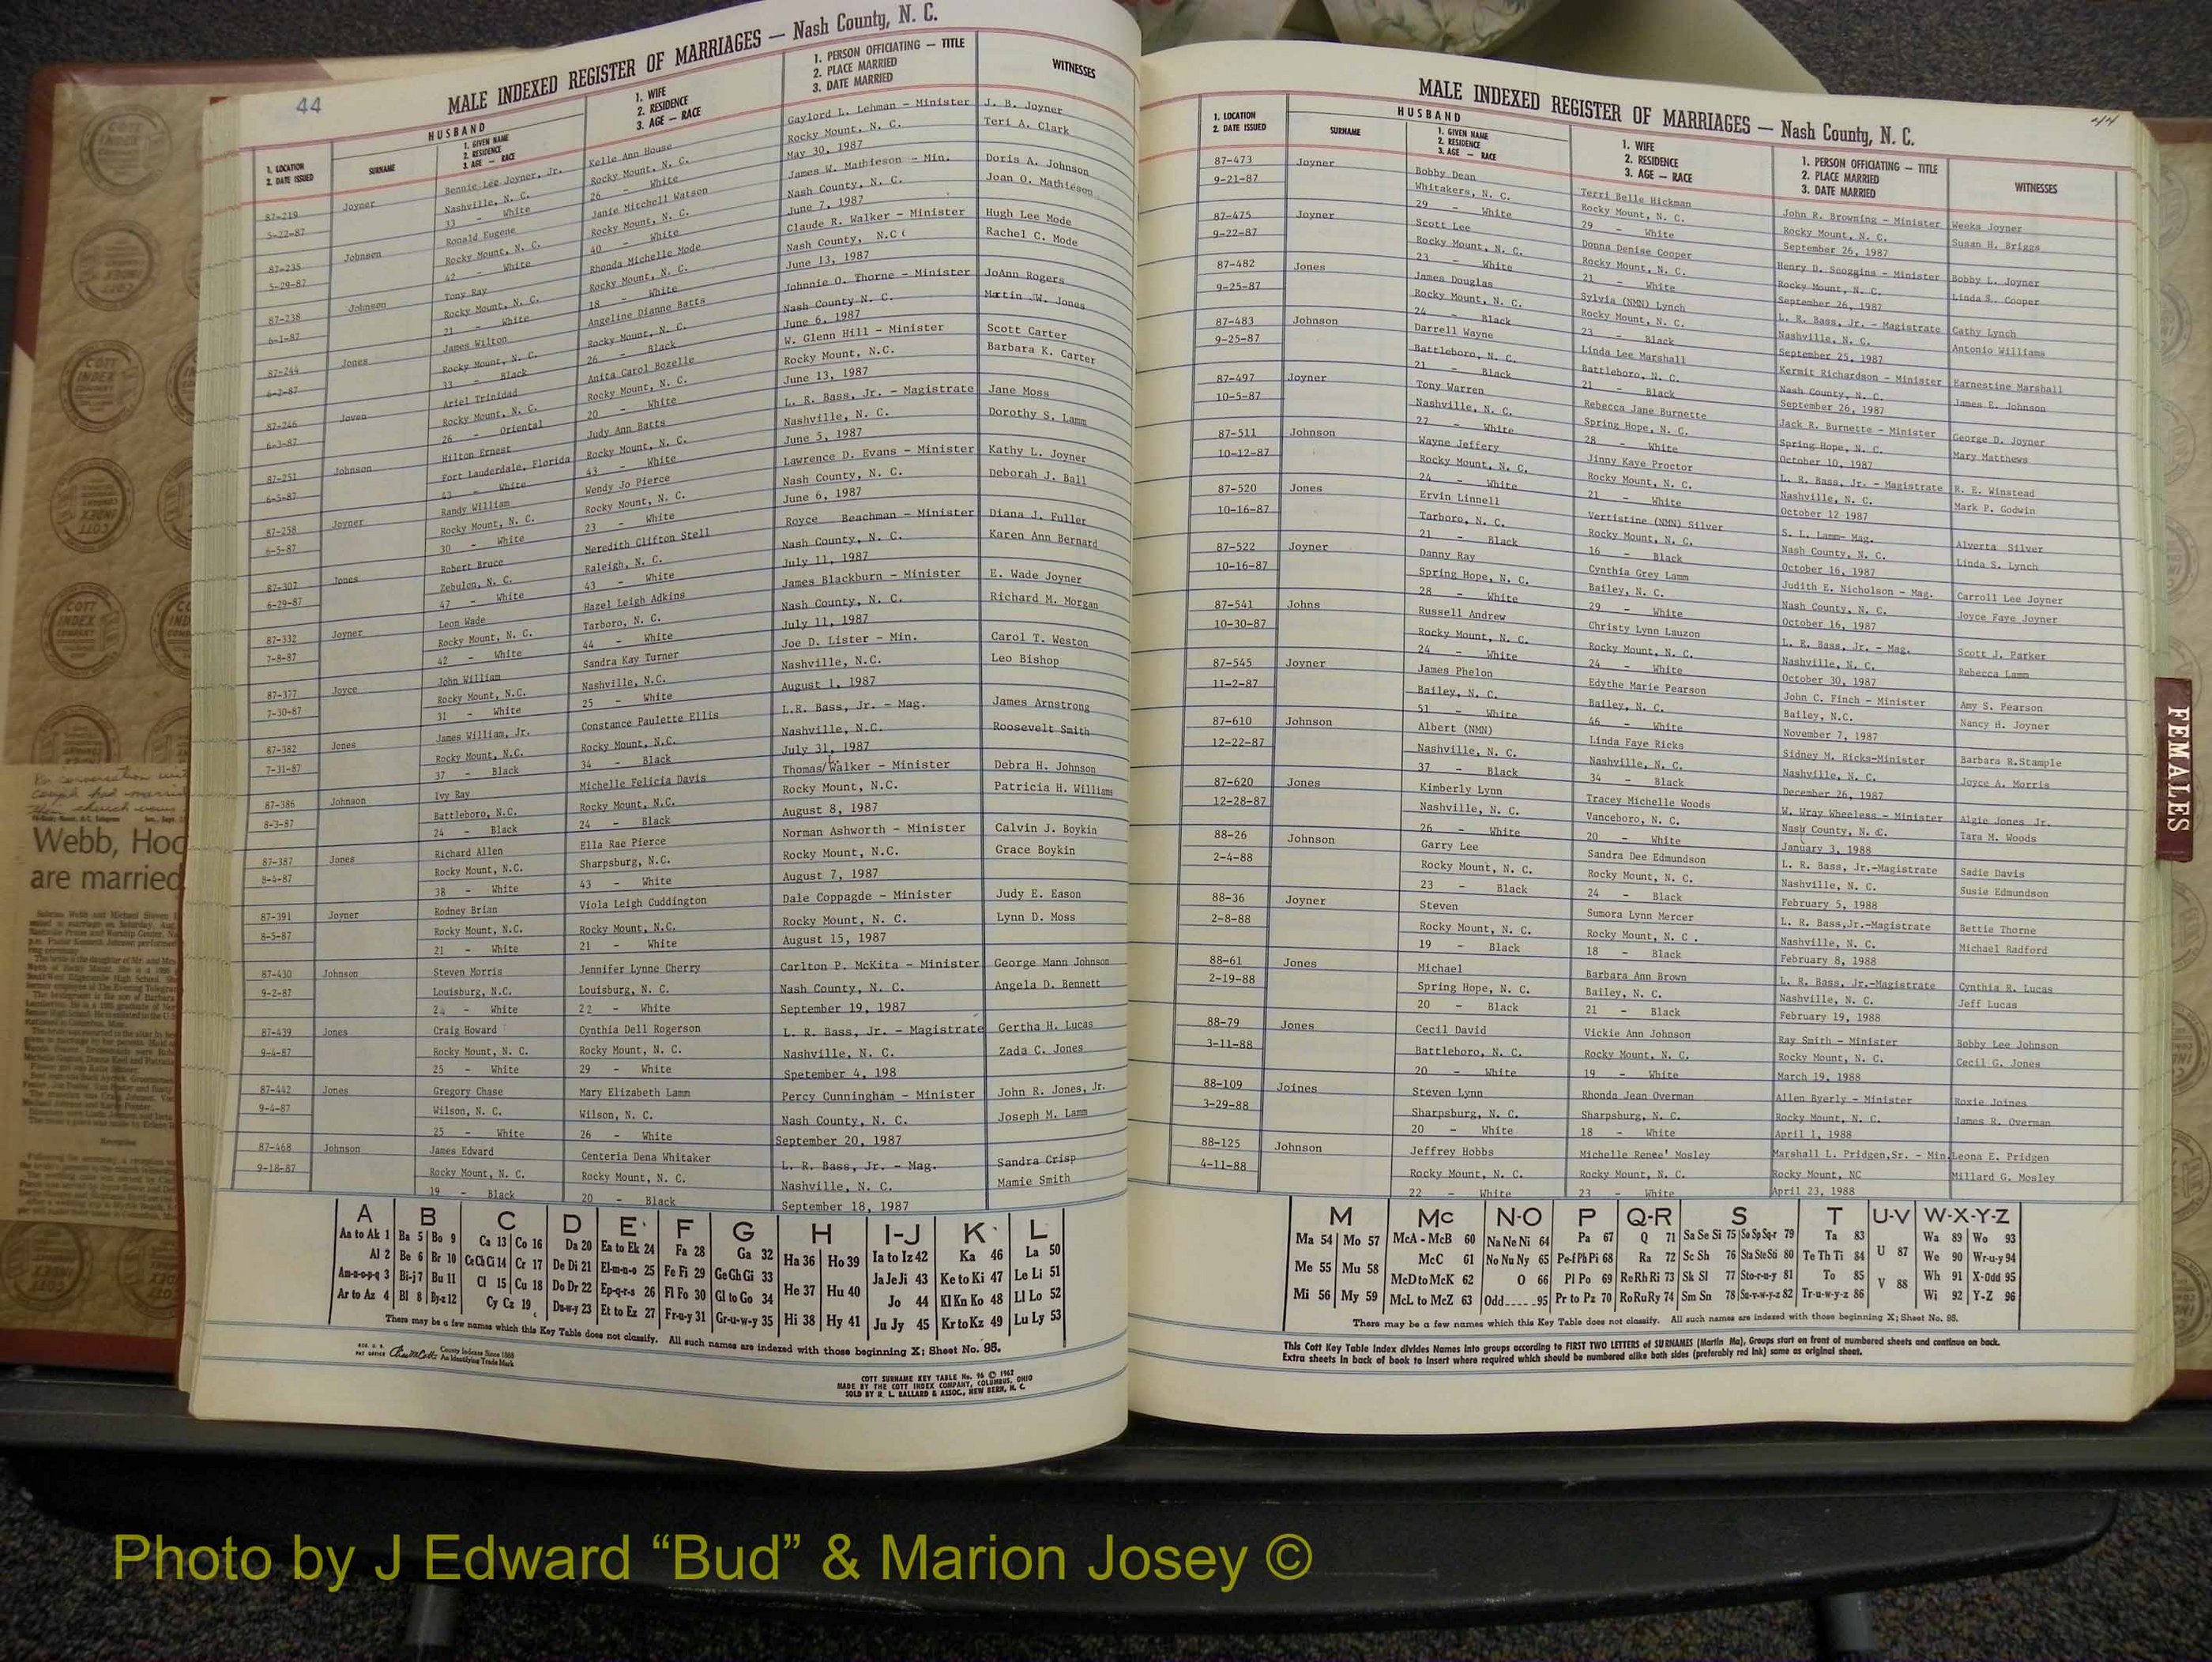 44
MALE INDEXED REGISTER OF MARRIAGES — Nash County, N. C.
1. LOCATION
2. DATE ISSUED
HUSBAND
SURNAME
1. GIVEN NAME
2. RESIDENCE
3. AGE — RACE
1. WIFE
2. RESIDENCE
3. AGE — RACE
1. PERSON OFFICIATING — TITLE
2. PLACE MARRIED
3. DATE MARRIED
WITNESSES
87-219 Joyner Bennie Lee Joyner, Jr. Kelle Ann House Gaylord L. Lehman - Minister J. B. Joyner
5-22-87 Nashville, N. C. Rocky Mount, N. C. Rocky Mount, N. C. Teri A. Clark
33 - White 26 - White May 30, 1987
87-235 Johnson Ronald Eugene Janie Mitchell Watson James W. Mathieson - Min. Doris A. Johnson
5-29-87 Rocky Mount, N. C. Rocky Mount, N. C. Nash County, N. C. Joan O. Mathieson
42 - White 40 - White June 7, 1987
87-238 Johnson Tony Ray Rhonda Michelle Mode Claude R. Walker - Minister Hugh Lee Mode
6-1-87 Rocky Mount, N. C. Rocky Mount, N. C. Nash County, N.C( Rachel C. Mode
21 - White 18 - White June 13, 1987
87-244 Jones James Wilton Angeline Dianne Batts Johnnie O. Thorne - Minister JoAnn Rogers
6-2-87 Rocky Mount, N. C. Rocky Mount, N. C. Nash County N. C. Martin W. Jones
33 - Black 26 - Black June 6, 1987
87-246 Joven Ariel Trinidad Anita Carol Bozelle W. Glenn Hill - Minister Scott Carter
6-3-87 Rocky Mount, N. C. Rocky Mount, N. C. Rocky Mount, N.C. Barbara K. Carter
26 - Oriental 20 - White June 13, 1987
87-251 Johnson Hilton Ernest Judy Ann Batts L. R. Bass, Jr. - Magistrate Jane Moss
6-5-87 Fort Lauderdale, Florida Rocky Mount, N. C. Nashville, N. C. Dorothy S. Lamm
43 - White 43 - White June 5, 1987
87-258 Joyner Randy William Wendy Jo Pierce Lawrence D. Evans - Minister Kathy L. Joyner
6-5-87 Rocky Mount, N. C. Rocky Mount, N. C. Nash County, N. C. Deborah J. Ball
30 - White 23 - White June 6, 1987
87-307 Jones Robert Bruce Meredith Clifton Stell Royce Beachman - Minister Diana J. Fuller
6-29-87 Zebulon, N. C. Raleigh, N. C. Nash County, N. C. Karen Ann Bernard
47 - White 43 - White July 11, 1987
87-332 Joyner Leon Wade Hazel Leigh Adkins James Blackburn - Minister E. Wade Joyner
7-8-87 Rocky Mount, N. C. Tarboro, N. C. Nash County, N. C. Richard M. Morgan
42 - White 44 - White July 11, 1987
87-377 Joyce John William Sandra Kay Turner Joe D. Lister - Min. Carol T. Weston
7-30-87 Rocky Mount, N.C. Nashville, N.C. Nashville, N.C. Leo Bishop
31 - White 25 - White August 1, 1987
87-382 Jones James William, Jr. Constance Paulette Ellis L.R. Bass, Jr. - Mag. James Arnstrong
7-31-87 Rocky Mount, N.C. Rocky Mount, N.C. Nashville, N.C. Roosevelt Smith
37 - Black 34 - Black July 31, 1987
87-386 Johnson Ivy Ray Michelle Felicia Davis Thomas/Walker - Minister Debra H. Johnson
8-3-87 Battleboro, N.C. Rocky Mount, N.C. Rocky Mount, N.C. Patricia H. Williams
24 - Black 24 - Black August 8, 1987
87-387 Jones Richard Allen Ella Rae Pierce Norman Ashworth - Minister Calvin J. Boykin
8-4-87 Rocky Mount, N.C. Sharpsburg, N.C. Rocky Mount, N.C. Grace Boykin
38 - White 43 - White August 7, 1987
87-391 Joyner Rodney Brian Viola Leigh Cuddington Dale Coppagde - Minister Judy E. Eason
8-5-87 Rocky Mount, N.C. Rocky Mount, N.C. Rocky Mount, N. C. Lynn D. Moss
21 - White 21 - White August 15, 1987
87-430 Johnson Steven Morris Jennifer Lynne Cherry Carlton P. McKita - Minister George Mann Johnson
9-2-87 Louisburg, N.C. Louisburg, N.C. Nash County, N. C. Angela D. Bennett
24 - White 22 - White September 19, 1987
87-439 Jones Craig Howard Cynthia Dell Rogerson L. R. Bass, Jr. - Magistrate Gertha H. Lucas
9-4-87 Rocky Mount, N. C. Rocky Mount, N. C. Nashville, N. C. Zada C. Jones
25 - White 29 - White Spetember 4, 198
87-442 Jones Gregory Chase Mary Elizabeth Lamm Percy Cunningham - Minister John R. Jones, Jr.
9-4-87 Wilson, N. C. Wilson, N. C. Nash County, N. C. Joseph M. Lamm
25 - White 26 - White September 20, 1987
87-468 Johnson James Edward Centeria Dena Whitaker L. R. Bass, Jr. - Mag. Sandra Crisp
9-18-87 Rocky Mount, N. C. Rocky Mount, N. C. Nashville, N. C. Mamie Smith
19 - Black 20 - Black September 18, 1987
A B C D E F G H I-J K L
Aa to Ak 1 Ba 5 Bo 9 Ca 13 Co 16 Da 20 Ea to Ek 24 Fa 28 Ga 32 Ha 36 Ho 39 Ia to Iz 42 Ka 46 La 50
Al 2 Be 6 Br 10 Ce Ch Ci 14 Cr 17 De Di 21 El-m-n-o 25 Fe Fi 29 Ge Gh Gi 33 Ja Je Ji 43 Ke to Ki 47 Le Li 51
Am-n-o-p-q 3 Bi-j 7 Bu 11 Cl 15 Cu 18 Do Dr 22 Ep-q-r-s 26 Fl Fo 30 Gl to Go 34 He 37 Hu 40 Jo 44 Kl Kn Ko 48 Ll Lo 52
Ar to Az 4 Bl 8 By-z 12 Cy Cz 19 Du-w-y 23 Et to Ez 27 Fr-u-y 31 Gr-u-w-y 35 Hi 38 Hy 41 Ju Jy 45 Kr to Kz 49 Lu Ly 53
There may be a few names which this Key Table does not classify. All such names are indexed with those beginning X; Sheet No. 95.
County Indexes Since 1888
An Identifying Trade Mark
COTT SURNAME KEY TABLE No. 96 © 1962
MADE BY THE COTT INDEX COMPANY, COLUMBUS, OHIO
SOLD BY R. L. BALLARD & ASSOC., NEW BERN, N. C.
44
MALE INDEXED REGISTER OF MARRIAGES — Nash County, N. C.
1. LOCATION
2. DATE ISSUED
HUSBAND
SURNAME
1. GIVEN NAME
2. RESIDENCE
3. AGE — RACE
1. WIFE
2. RESIDENCE
3. AGE — RACE
1. PERSON OFFICIATING — TITLE
2. PLACE MARRIED
3. DATE MARRIED
WITNESSES
87-473 Joyner Bobby Dean Terri Belle Hickman John R. Browning - Minister Weeks Joyner
9-21-87 Whitakers, N. C. Rocky Mount, N. C. Rocky Mount, N. C. Susan H. Briggs
29 - White 29 - White September 26, 1987
87-475 Joyner Scott Lee Donna Denise Cooper Henry D. Scoggins - Minister Bobby L. Joyner
9-22-87 Rocky Mount, N. C. Rocky Mount, N. C. Rocky Mount, N. C. Linda S. Cooper
23 - White 21 - White September 26, 1987
87-482 Jones James Douglas Sylvia (NMN) Lynch L. R. Bass, Jr. - Magistrate Cathy Lynch
9-25-87 Rocky Mount, N. C. Rocky Mount, N. C. Nashville, N. C. Antonio Williams
24 - Black 23 - Black September 25, 1987
87-483 Johnson Darrell Wayne Linda Lee Marshall Kermit Richardson - Minister Earnestine Marshall
9-25-87 Battleboro, N. C. Battleboro, N. C. Nash County, N. C. James E. Johnson
21 - Black 21 - Black September 26, 1987
87-497 Joyner Tony Warren Rebecca Jane Burnette Jack R. Burnette - Minister George D. Joyner
10-5-87 Nashville, N. C. Spring Hope, N. C. Spring Hope, N. C. Mary Matthews
27 - White 28 - White October 10, 1987
87-511 Johnson Wayne Jeffery Jinny Kaye Proctor L. R. Bass, Jr. - Magistrate R. E. Winstead
10-12-87 Rocky Mount, N. C. Rocky Mount, N. C. Nashville, N. C. Mark P. Godwin
24 - White 21 - White October 12 1987
87-520 Jones Ervin Linnell Vertistine (NMN) Silver S. L. Lamm- Mag. Alverta Silver
10-16-87 Tarboro, N. C. Rocky Mount, N. C. Nash County, N. C. Linda S. Lynch
21 - Black 16 - Black October 16, 1987
87-522 Joyner Danny Ray Cynthia Grey Lamm Judith E. Nicholson - Mag. Carroll Lee Joyner
10-16-87 Spring Hope, N. C. Bailey, N. C. Nash County, N. C. Joyce Faye Joyner
28 - White 29 - White October 16, 1987
87-541 Johns Russell Andrew Christy Lynn Lauzon L. R. Bass, Jr. - Mag. Scott J. Parker
10-30-87 Rocky Mount, N. C. Rocky Mount, N. C. Nashville, N. C. Rebecca Lamm
24 - White 24 - White October 30, 1987
87-545 Joyner James Phelon Edythe Marie Pearson John C. Finch - Minister Amy S. Pearson
11-2-87 Bailey, N. C. Bailey, N. C. Bailey, N.C. Nancy H. Joyner
51 - White 46 - White November 7, 1987
87-610 Johnson Albert (NMN) Linda Faye Ricks Sidney M. Ricks-Minister Barbara R.Stample
12-22-87 Nashville, N. C. Nashville, N. C. Nashville, N. C. Joyce A. Morris
37 - Black 34 - Black December 26, 1987
87-620 Jones Kimberly Lynn Tracey Michelle Woods W. Wray Wheeless - Minister Algie Jones Jr.
12-28-87 Nashville, N. C. Vanceboro, N. C. Nash County, N. C. Tara M. Woods
26 - White 20 - White January 3, 1988
88-26 Johnson Garry Lee Sandra Dee Edmundson L. R. Bass, Jr.-Magistrate Sadie Davis
2-4-88 Rocky Mount, N. C. Rocky Mount, N. C. Nashville, N. C. Susie Edmundson
23 - Black 24 - Black February 5, 1988
88-36 Joyner Steven Sumora Lynn Mercer L. R. Bass,Jr.-Magistrate Bettie Thorne
2-8-88 Rocky Mount, N. C. Rocky Mount, N. C . Nashville, N. C. Michael Radford
19 - Black 18 - Black February 8, 1988
88-61 Jones Michael Barbara Ann Brown L. R. Bass, Jr.-Magistrate Cynthia R. Lucas
2-19-88 Spring Hope, N. C. Bailey, N. C. Nashville, N. C. Jeff Lucas
20 - Black 21 - Black February 19, 1988
88-79 Jones Cecil David Vickie Ann Johnson Ray Smith - Minister Bobby Lee Johnson
3-11-88 Battleboro, N. C. Rocky Mount, N. C. Rocky Mount, N. C. Cecil G. Jones
20 - White 19 - White March 19, 1988
88-109 Joines Steven Lynn Rhonda Jean Overman Allen Byerly - Minister Roxie Joines
3-29-88 Sharpsburg, N. C. Sharpsburg, N. C. Rocky Mount, N. C. James R. Overman
20 - White 18 - White April 1, 1988
88-125 Johnson Jeffrey Hobbs Michelle Renee' Mosley Marshall L. Pridgen,Sr. - Min. Leona E. Pridgen
4-11-88 Rocky Mount, N. C. Rocky Mount, N. C. Rocky Mount, NC Millard G. Mosley
22 - White 23 - White April 23, 1988
M Mc N-O P Q-R S T U-V W-X-Y-Z
Ma 54 Mo 57 McA - McB 60 Na Ne Ni 64 Pa 67 Q 71 Sa Se Si 75 So Sp Sq-r 79 Ta 83 Wa 89 Wo 93
Me 55 Mu 58 McC 61 No Nu Ny 65 Pe-f Ph Pi 68 Ra 72 Sc Sh 76 Sta Ste Sti 80 Te Th Ti 84 U 87 We 90 Wr-u-y 94
McD to McK 62 O 66 Pl Po 69 Re Rh Ri 73 Sk Sl 77 Sto-r-u-y 81 To 85 Wh 91 X-Odd 95
Mi 56 My 59 McL to McZ 63 Odd 95 Pr to Pz 70 Ro Ru Ry 74 Sm Sn 78 Su-v-w-y-z 82 Tr-u-w-y-z 86 V 88 Wi 92 Y-Z 96
There may be a few names which this Key Table does not classify. All such names are indexed with those beginning X; Sheet No. 95.
This Cott Key Table Index divides Names into groups according to FIRST TWO LETTERS of SURNAMES (Martin Ma), Groups start on front of numbered sheets and continue on back.
Extra sheets in back of book to insert where required which should be numbered alike both sides (preferably red ink) same as original sheet.
FEMALES
COTT
INDEX
COMPANY
Webb, Hoo
are married
Photo by J Edward “Bud” & Marion Josey ©